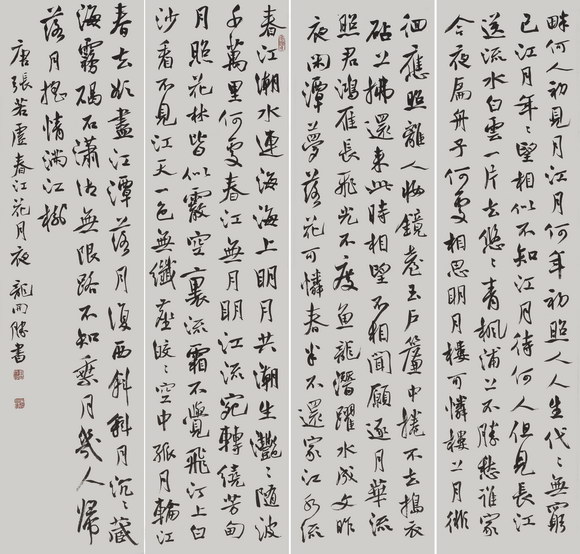 春江潮水連海海上明月共潮生灩々隨波
千萬里何處春江無月明江流宛轉繞芳甸
月照花林皆似霰空裏流霜不覺飛汀上白
沙看不見江天一色無纖塵皎々空中孤月輪江
畔何人初見月江月何年初照人人生代々無窮
已江月年々望相似不知江月待何人但見長江
送流水白雲一片去悠々青楓浦上不勝愁誰家
今夜扁舟子何處相思明月樓可憐樓上月徘
徊應照離人妝鏡臺玉戶簾中捲不去搗衣
砧上拂還來此時相望不相聞願逐月華流
照君鴻雁長飛光不度魚龍潛躍水成文昨
夜閑潭夢落花可憐春半不還家江水流
春去欲盡江潭落月復西斜斜月沉々藏
海霧碣石瀟湘無限路不知乘月幾人歸
落月搖情滿江樹
唐張若虛春江花月夜 龍開勝書